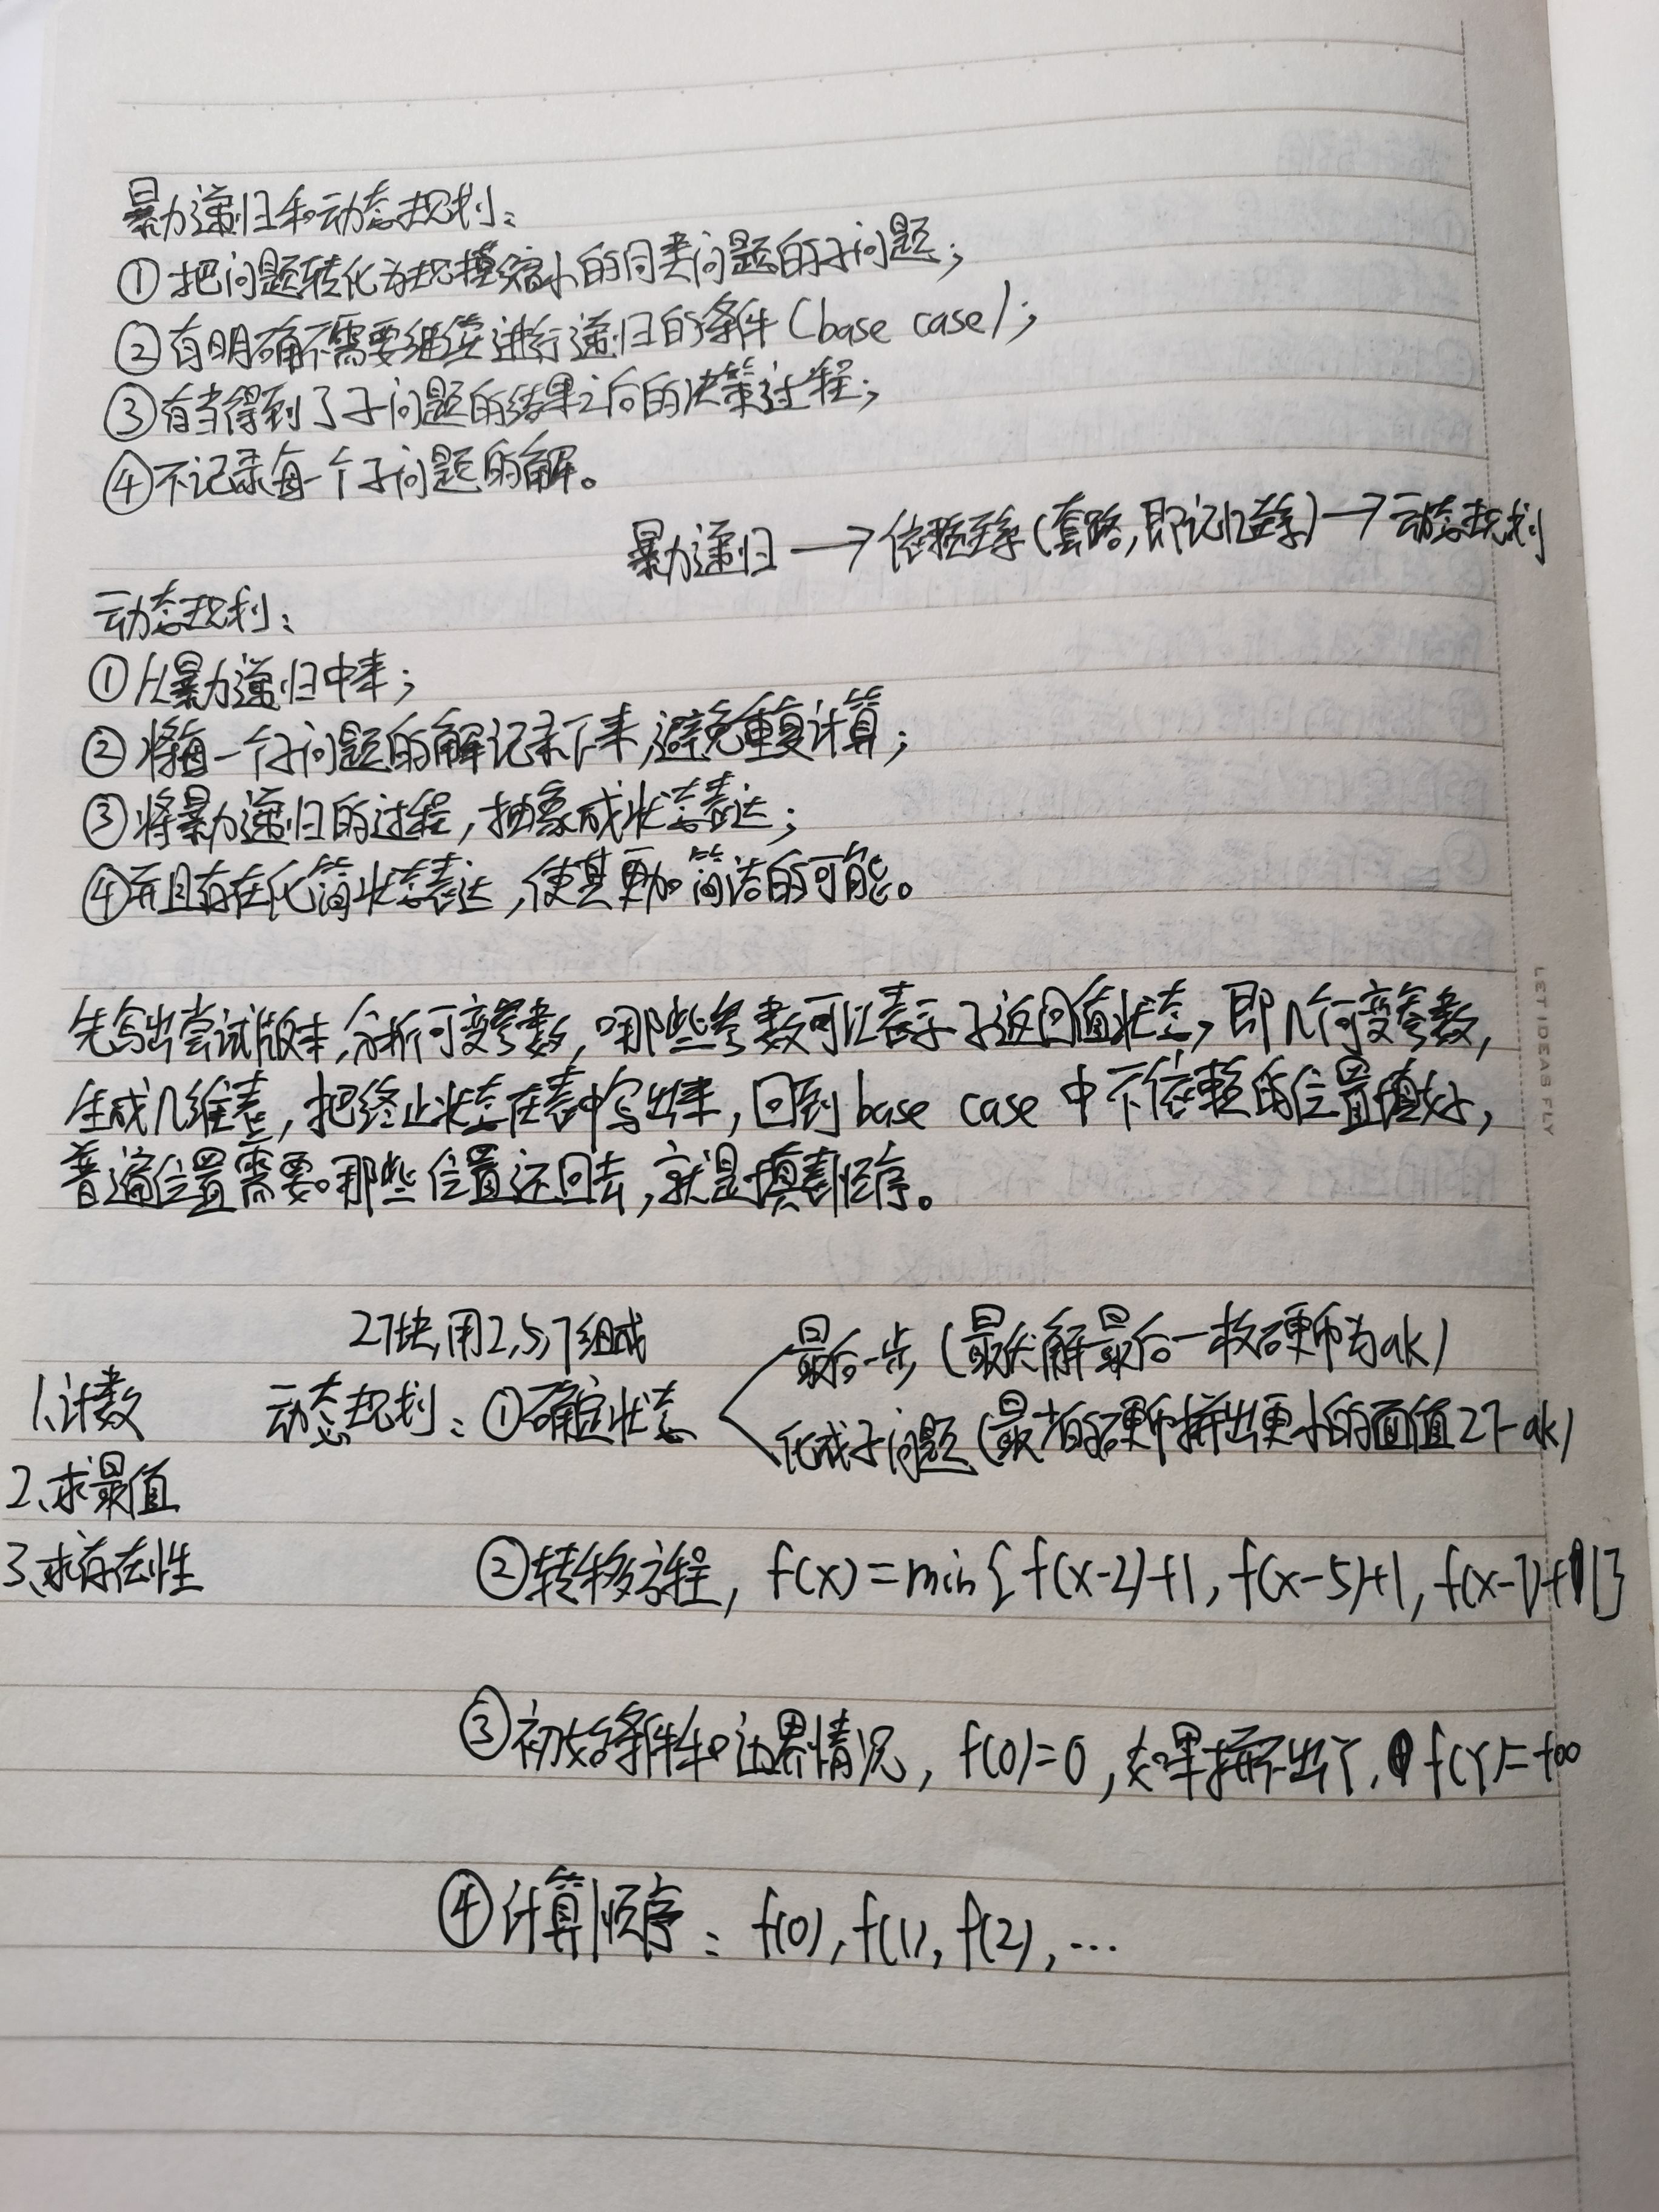 暴力递归和动态规划：
①把问题转化为规模缩小的同类问题的子问题；
②有明确不需要继续进行递归的条件（base case）；
③有当得到了子问题的结果之后的决策过程；
④不记录每一个子问题的解。
暴力递归→依赖关系（套路，即记忆）→动态规划
动态规划：
①从暴力递归中来；
②将每一个子问题的解记录下来，避免重复计算；
③将暴力递归的过程，抽象成状态表达；
④并且存在化简状态表达，使其更加简洁的可能。
先写出尝试版本，分析可变参数，哪些参数可以表示了返回值状态，即几个可变参数，
生成几维表，把终止状态在表中写出来，回到base case中不依赖的位置填好，
普遍位置需要哪些位置还回去，就是填表顺序。
27块，用2,5,7组成
1.计数
动态规划：①确定状态
最后一步（最优解最后一枚硬币为ak）
化成子问题（最少的硬币拼出更小的面值27-ak）
2、求最值
3、求存在性
②转移方程，f(x)=min{f(x-2)+1,f(x-5)+1,f(x-7)+1}
③初始条件和边界情况，f(0)=0，如果拼不出Y，f(Y)=+∞
④计算顺序：f(0),f(1),f(2),…
LET IDEAS FLY